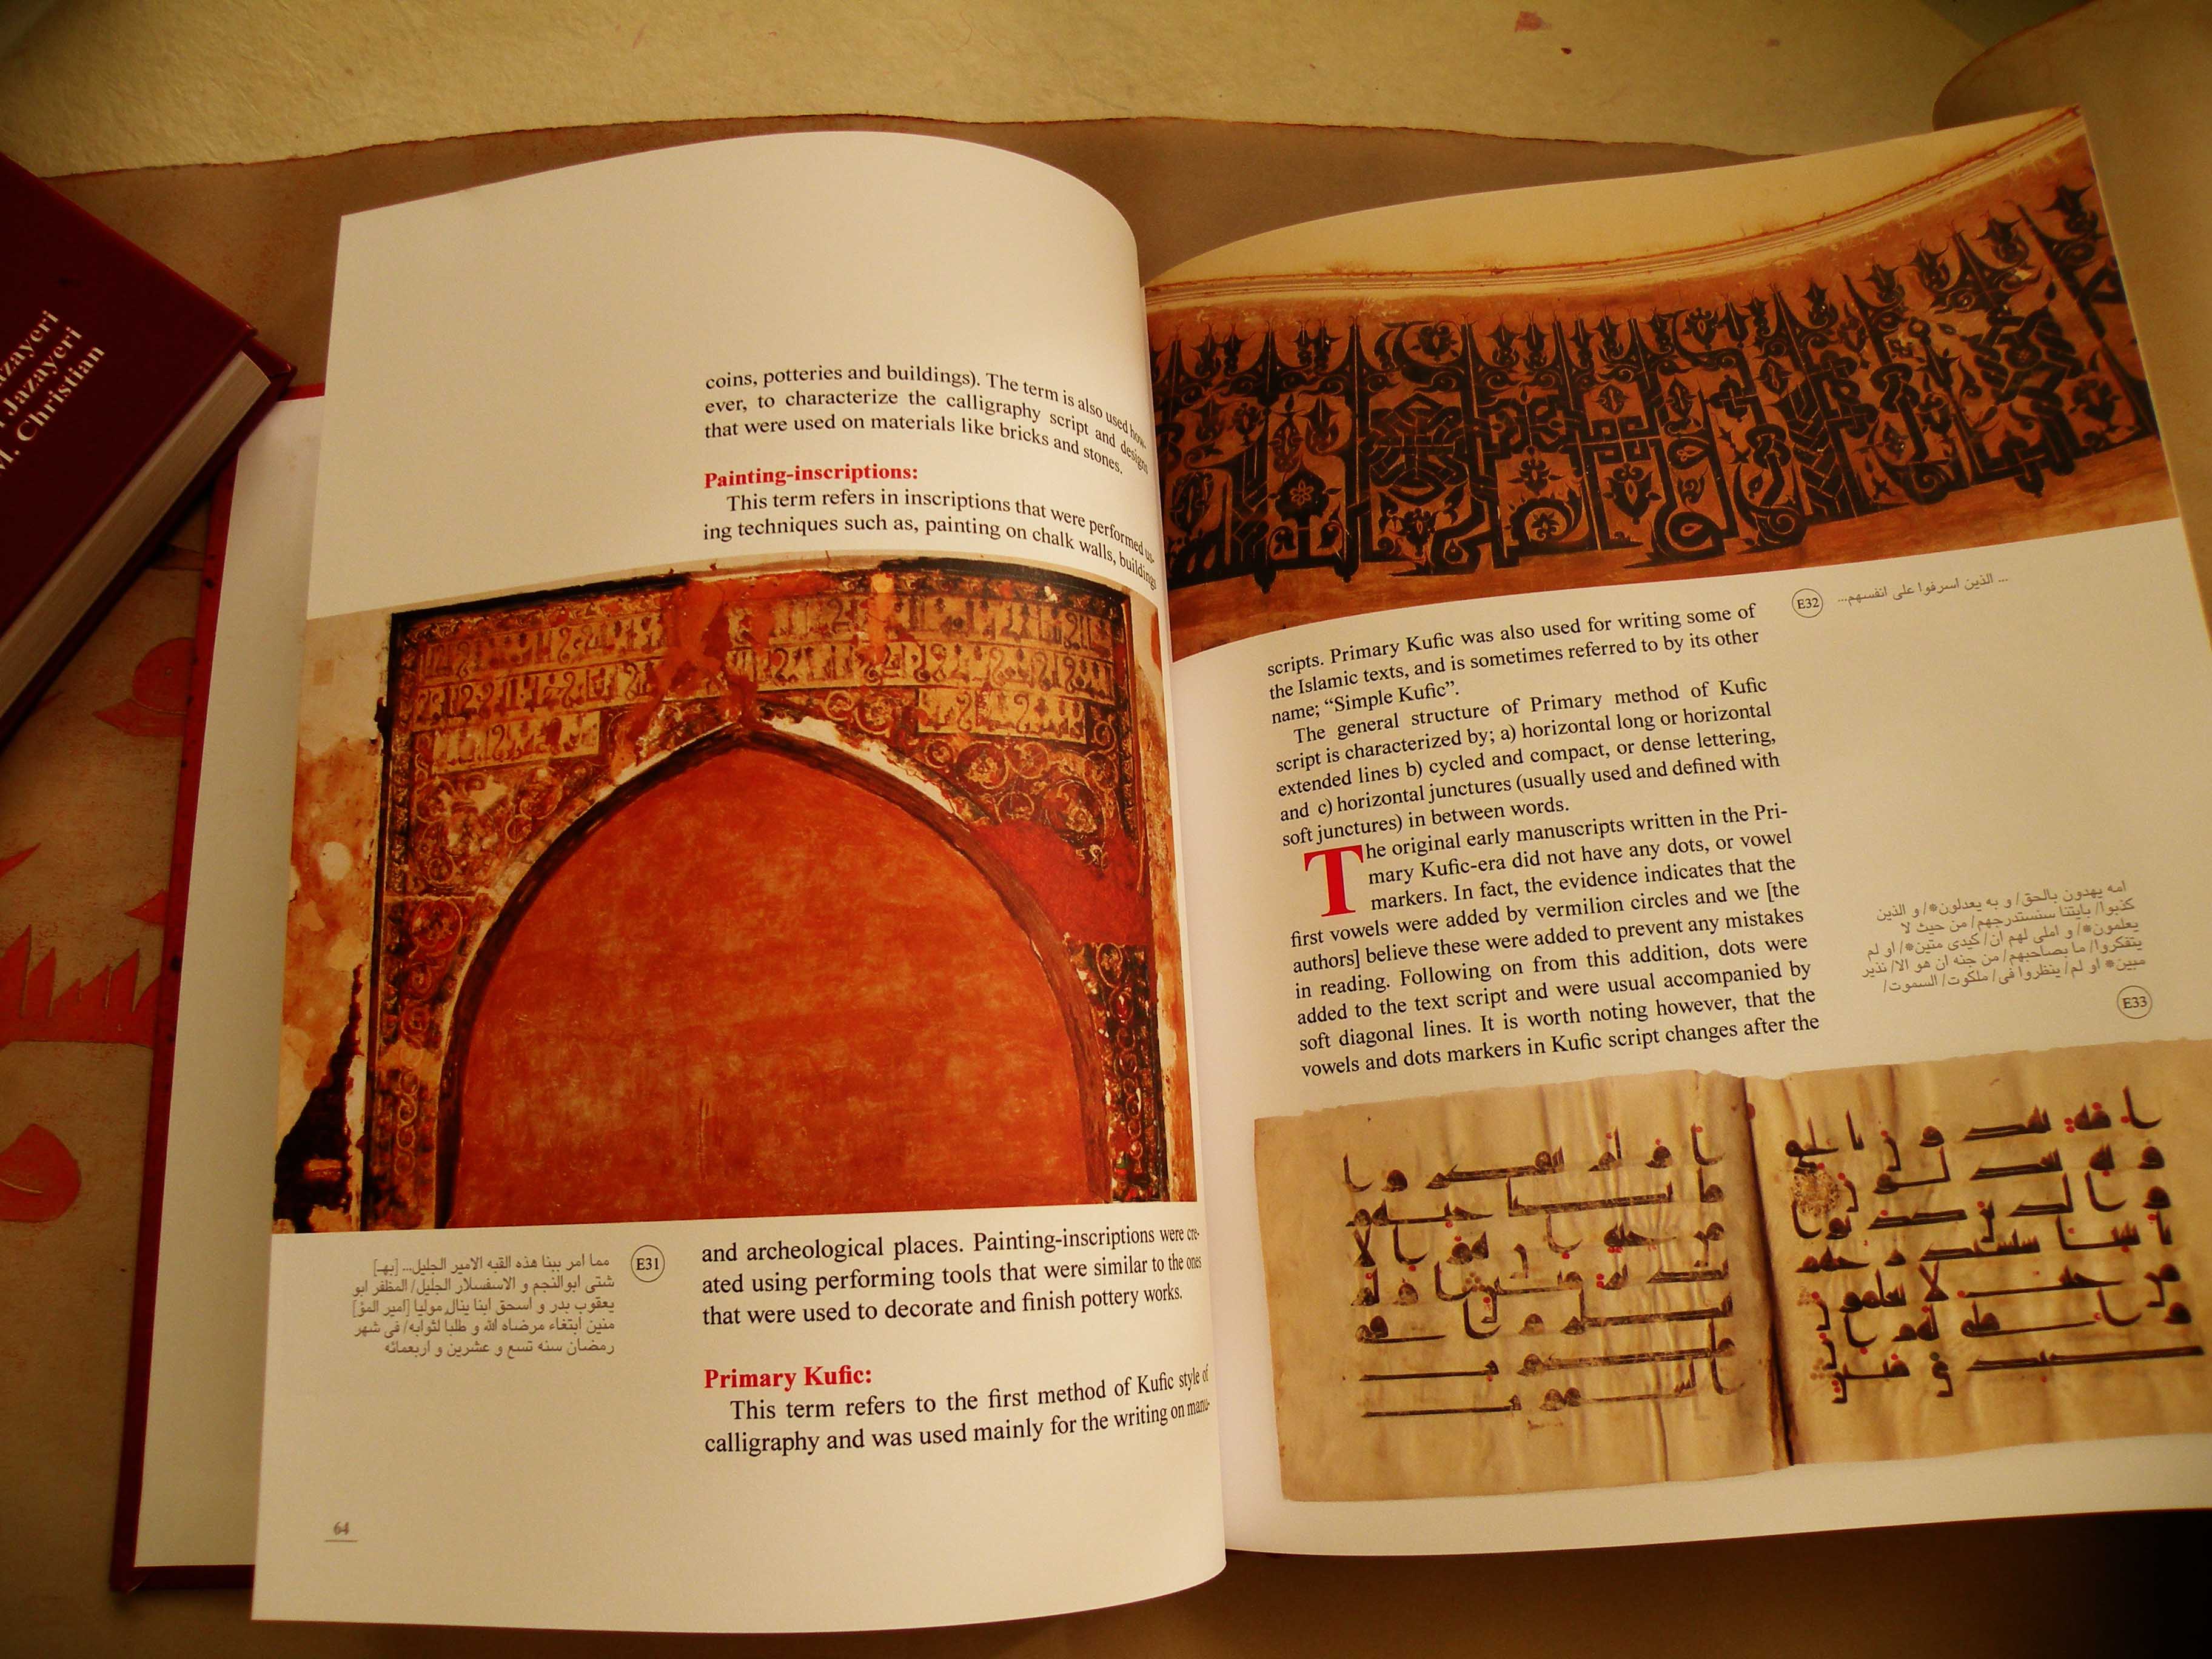 azayeri
Jazayeri
M. Christian
coins, potteries and buildings). The term is also used how-
ever, to characterize the calligraphy script and designs
that were used on materials like bricks and stones.
Painting-inscriptions:
This term refers in inscriptions that were performed us-
ing techniques such as, painting on chalk walls, buildings
مما امر ببنا هذه القبه الامیر الجلیل... [بهـ]
شتی ابوالنجم و الاسفسلار الجلیل/ المظفر ابو
یعقوب بدر و اسحق ابنا ینال مولیا [امیر المؤ]
منین ابتغاء مرضاه الله و طلبا لثوابه/ فی شهر
رمضان سنه تسع و عشرین و اربعمائه
E31
and archeological places. Painting-inscriptions were cre-
ated using performing tools that were similar to the ones
that were used to decorate and finish pottery works.
Primary Kufic:
This term refers to the first method of Kufic style of
calligraphy and was used mainly for the writing on manu-
64
E32
... الذین اسرفوا علی انفسهم...
scripts. Primary Kufic was also used for writing some of
the Islamic texts, and is sometimes referred to by its other
name; “Simple Kufic”.
The general structure of Primary method of Kufic
script is characterized by; a) horizontal long or horizontal
extended lines b) cycled and compact, or dense lettering,
and c) horizontal junctures (usually used and defined with
soft junctures) in between words.
The original early manuscripts written in the Pri-
mary Kufic-era did not have any dots, or vowel
markers. In fact, the evidence indicates that the
first vowels were added by vermilion circles and we [the
authors] believe these were added to prevent any mistakes
in reading. Following on from this addition, dots were
added to the text script and were usual accompanied by
soft diagonal lines. It is worth noting however, that the
vowels and dots markers in Kufic script changes after the
امه یهدون بالحق/ و به یعدلون*/ و الذین
کذبوا/ بایتنا سنستدرجهم/ من حیث لا
یعلمون*/ و املی لهم ان/ کیدی متین*/ او لم
یتفکروا/ ما بصاحبهم/ من جنه ان هو الا/ نذیر
مبین* او لم/ ینظروا فی/ ملکوت/ السموت/
E33